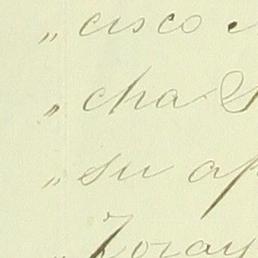 „ cisco
„ cha S
„ su ap
„ Zoray